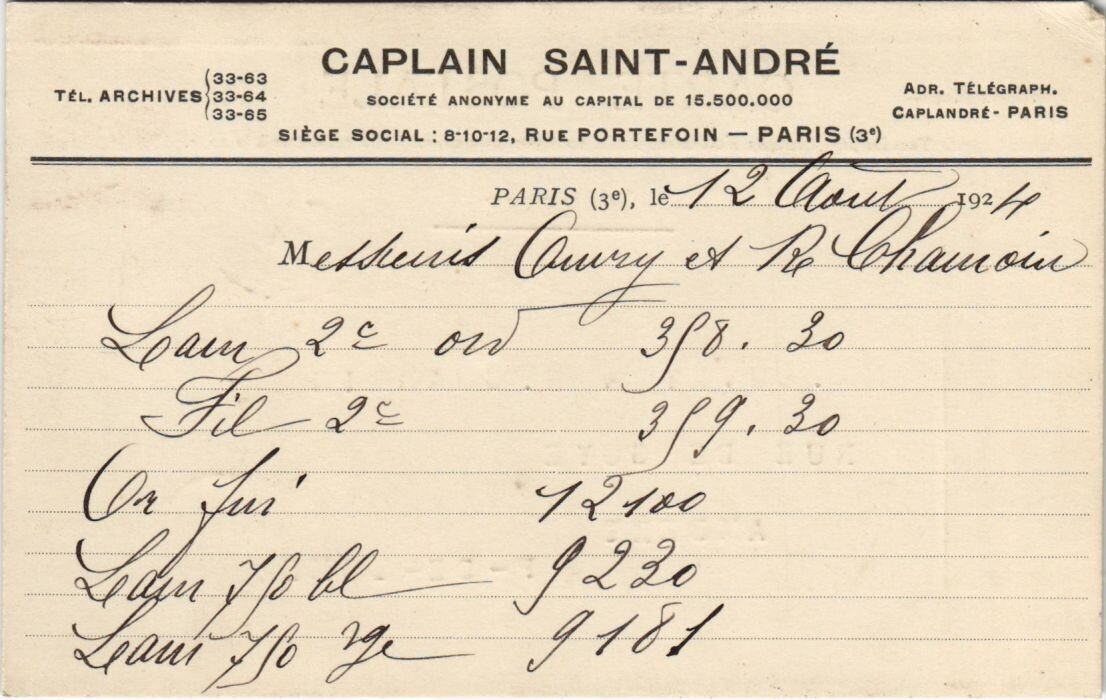 CAPLAIN SAINT-ANDRÉ
TÉL. ARCHIVES 33-63
33-64
33-65
SOCIÉTÉ ANONYME AU CAPITAL DE 15.500.000
ADR. TÉLÉGRAPH.
CAPLANDRÉ - PARIS
SIÈGE SOCIAL : 8-10-12, RUE PORTEFOIN — PARIS (3e)
PARIS (3e), le 12 Août 1924
Messieurs et R Chamoin
Lam 2c ord 358.30
Fil 2c 359.30
Or fin 12100
Lam 750 bl 9230
Lam 750 rge 9181